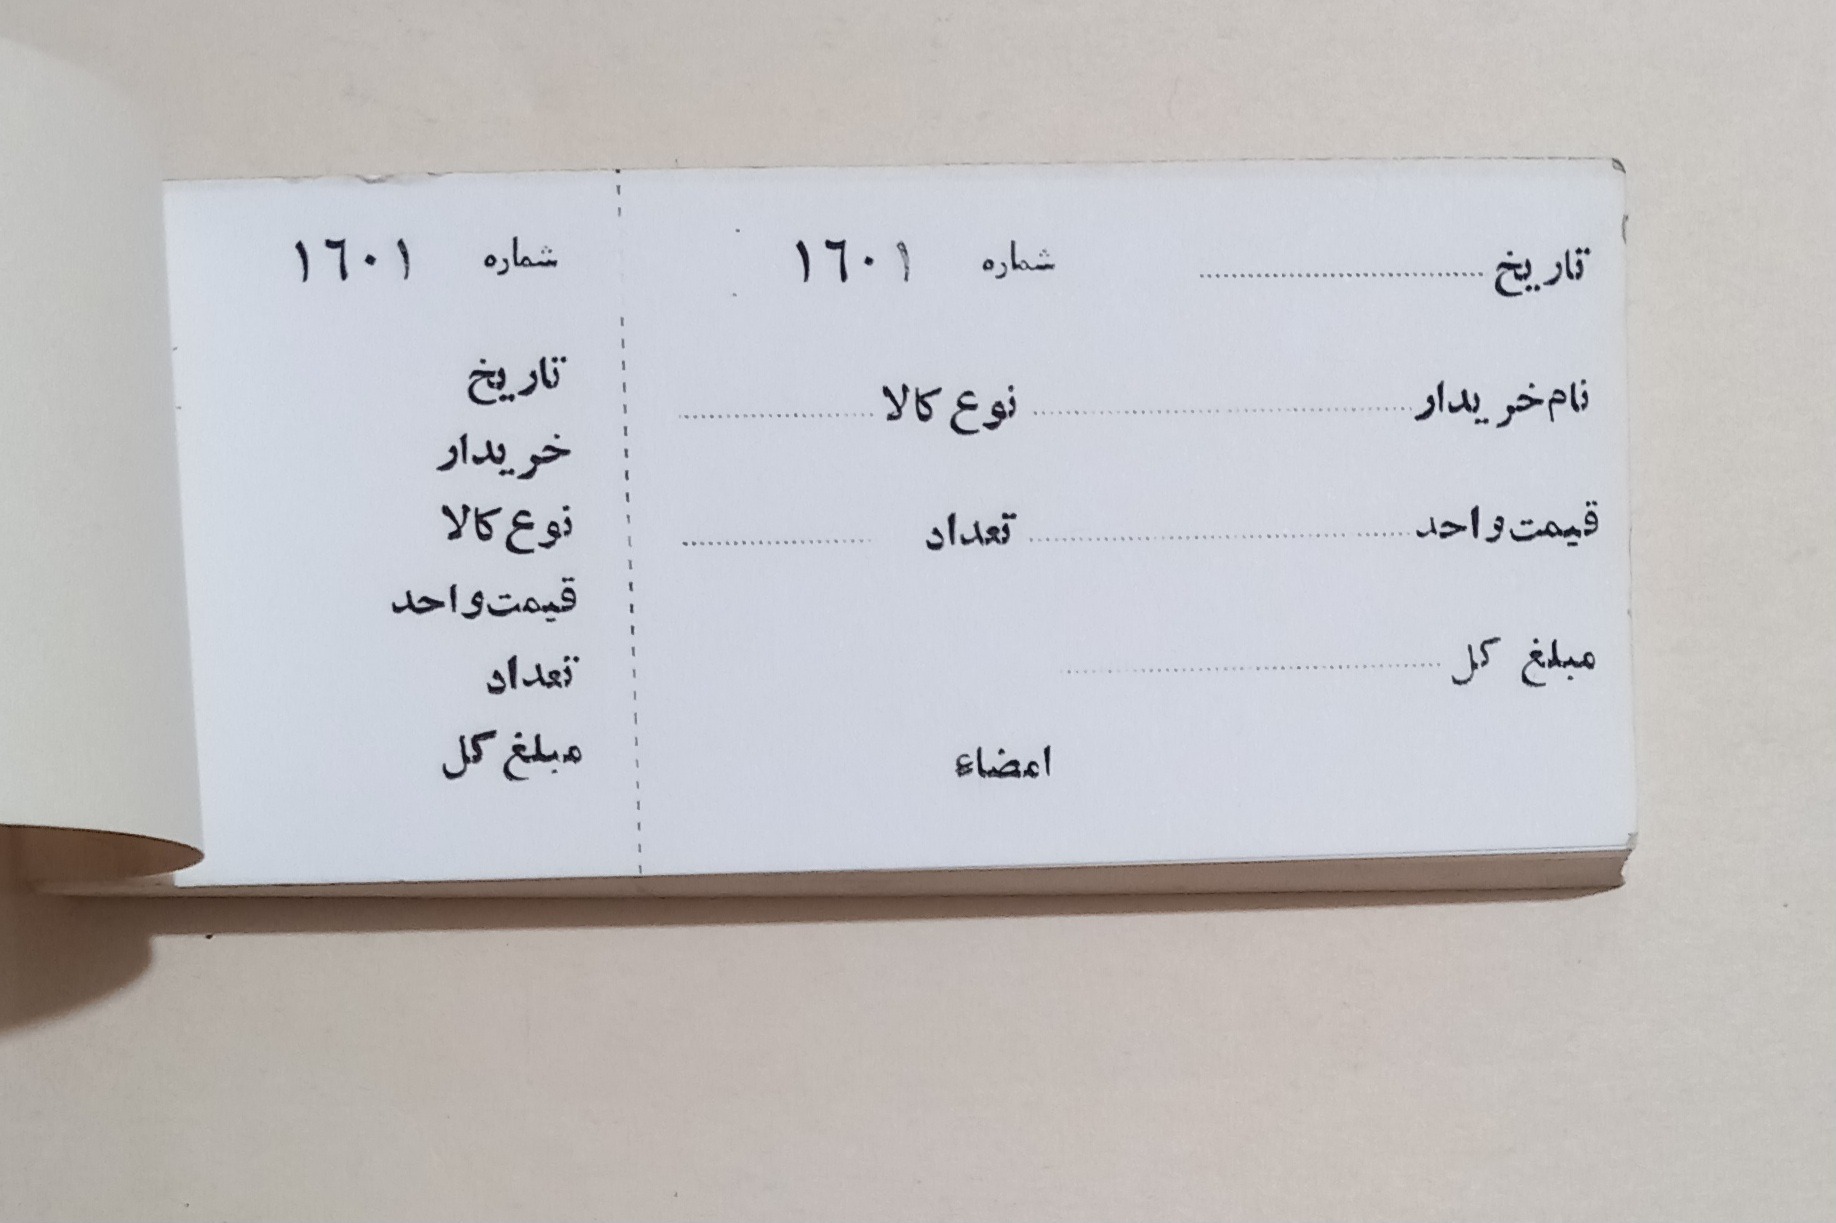 تاریخ ........ شماره ١٦٠١
نام خریدار ........ نوع کالا ........
قیمت واحد ........ تعداد ........
مبلغ کل ........
امضاء
شماره ١٦٠١
تاریخ
خریدار
نوع کالا
قیمت واحد
تعداد
مبلغ کل